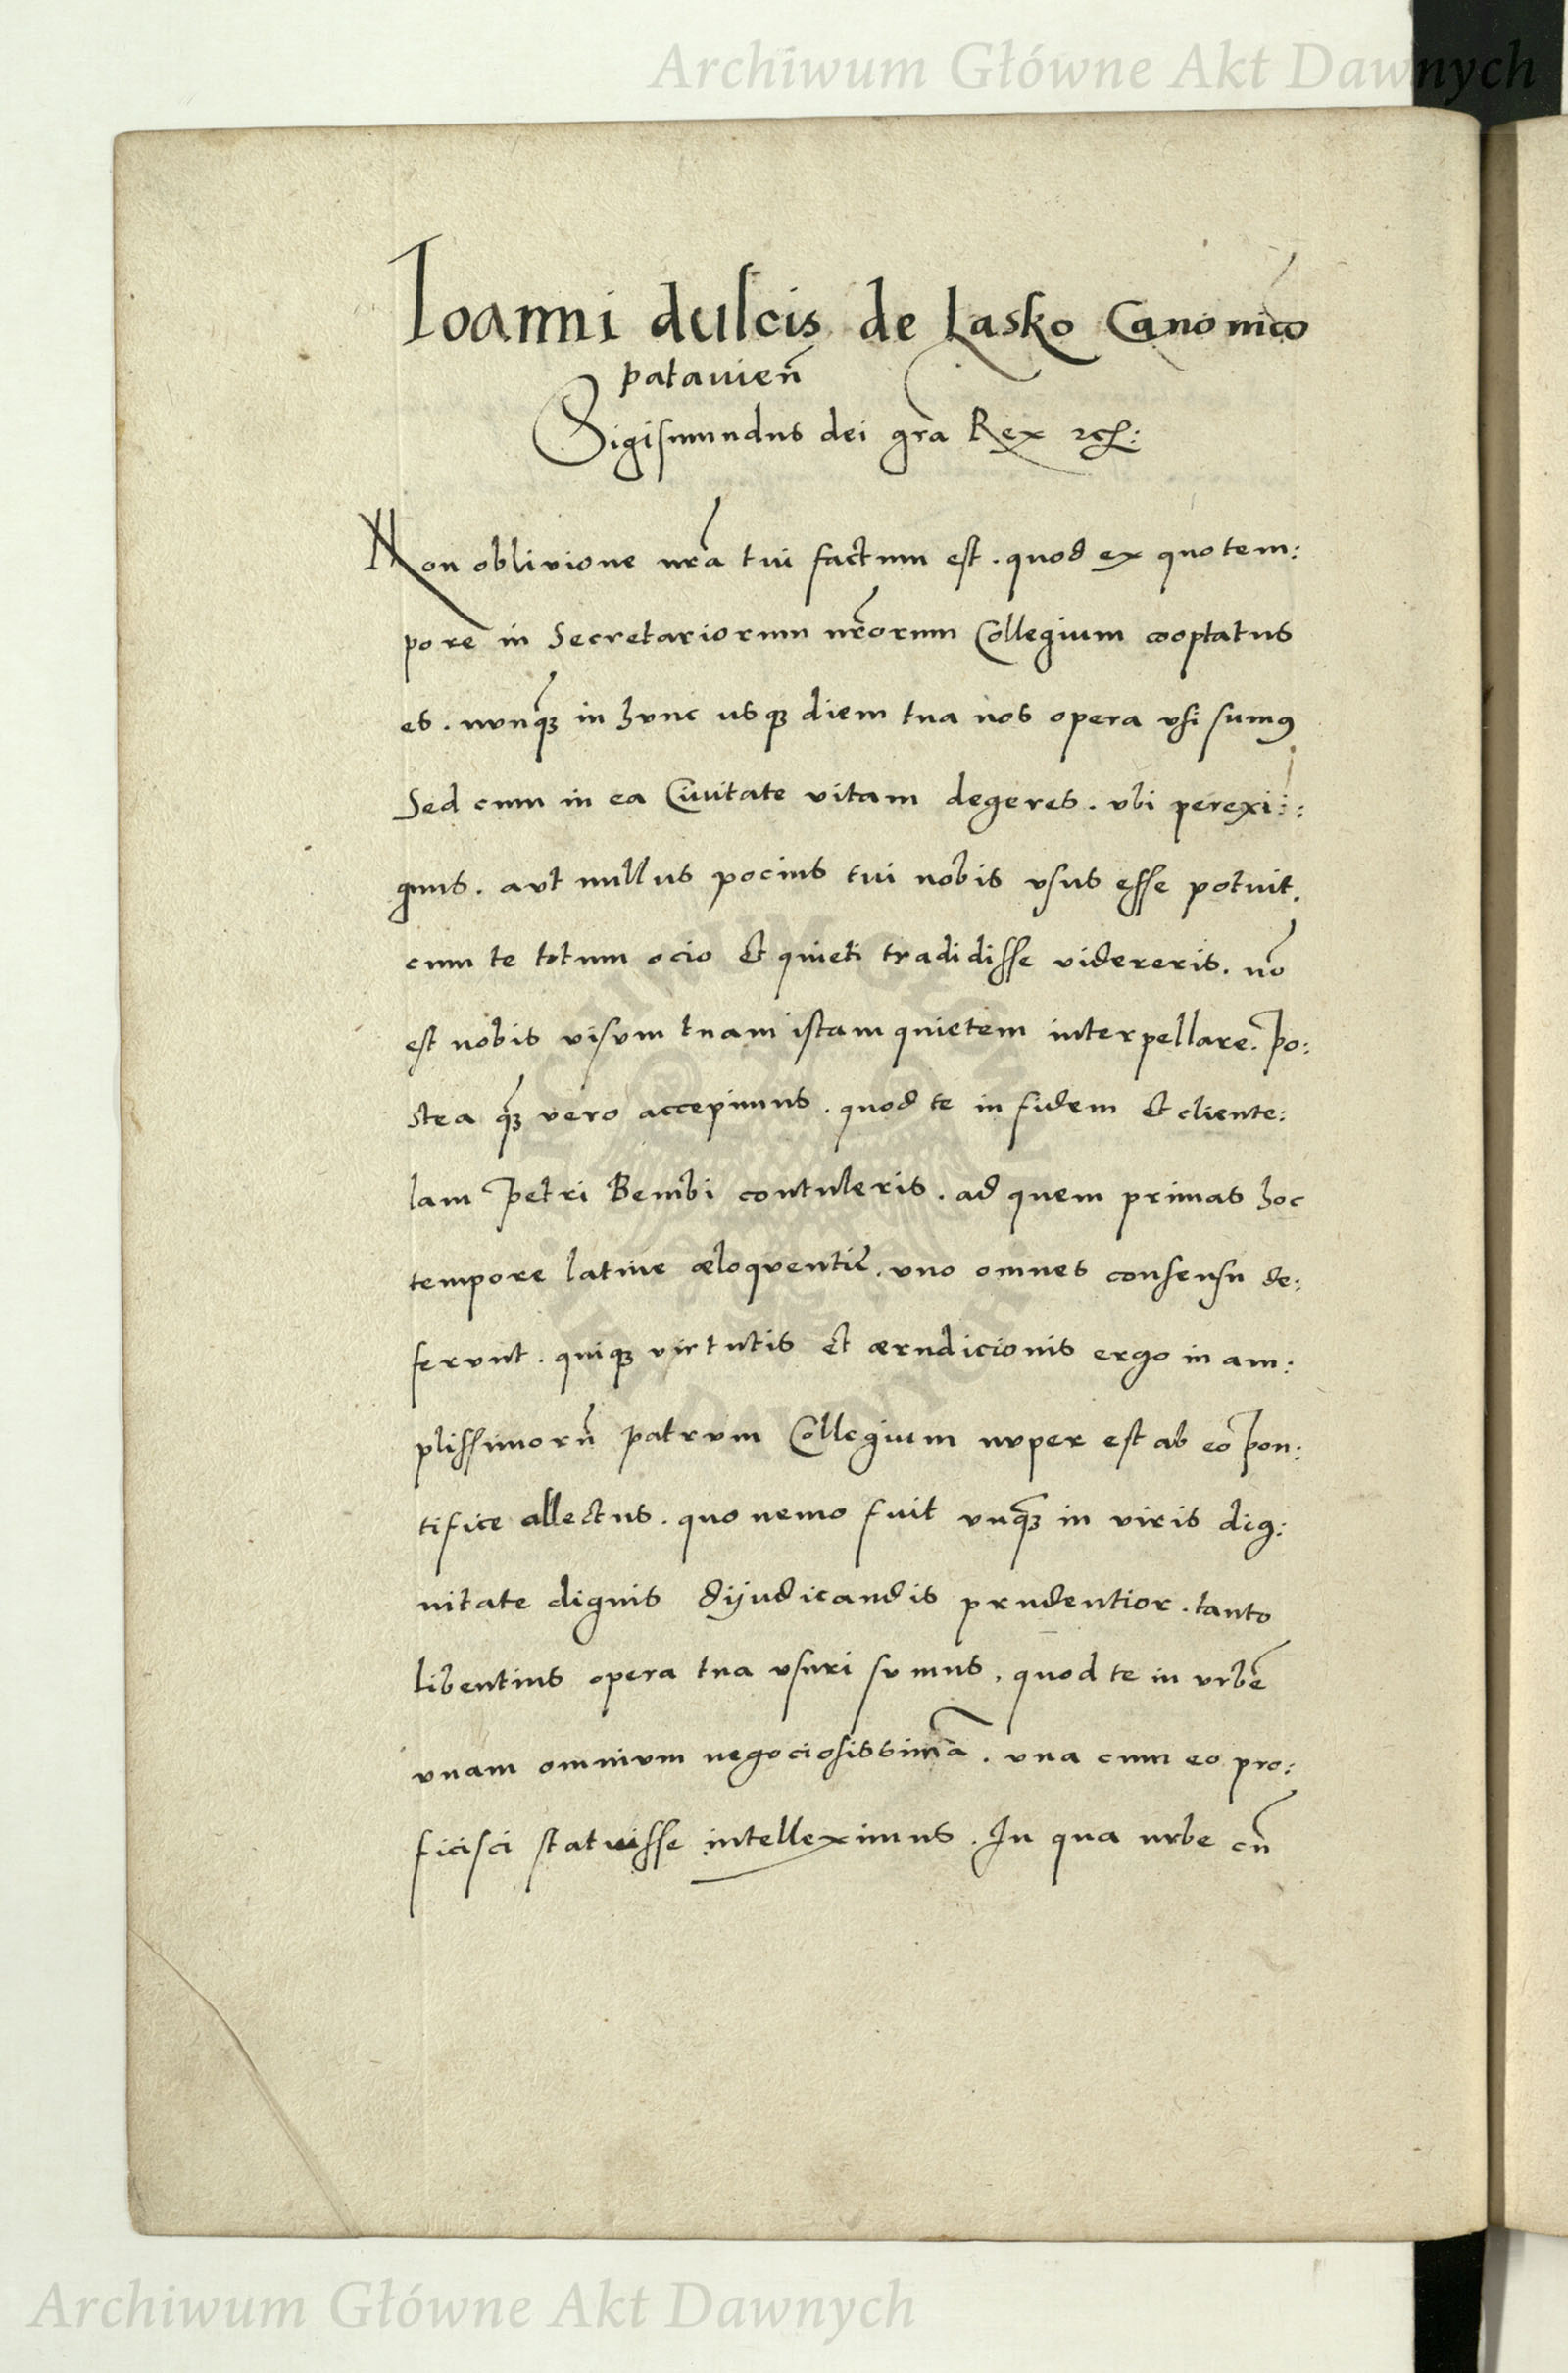 Archiwum Główne Akt Dawnych
Ioanni dulcis de Lasko Canonico
patavieñ
Sigismundus dei gr̃a Rex ⁊c̃:
Non oblivione nr̃a tui factum est. quod ex quo tem:
pore in Secretariorum nr̃orum Collegium cooptatus
es. nunq̃ꝫ in hunc usqꝫ diem tua nos opera usi sumꝰ
Sed cum in ea Civitate vitam degeres. ubi perexi:
guus. aut nullus pocius tui nobis usus esse potuit.
cum te totum ocio et quieti tradidisse videreris. nõ
est nobis visum tuam istam quietem interpellare. Po:
stea q̃ꝫ vero accepimus. quod te in fidem et cliente:
lam Petri Bembi contuleris. ad quem primas hoc
tempore latine æloquentię. uno omnes consensu de:
ferunt. quiqꝫ virtutis et ærudicionis ergo in am:
plissimorũ patrum Collegium nuper est ab eo Pon:
tifice allectus. quo nemo fuit unq̃ꝫ in viris dig:
nitate dignis dijudicandis prudentior. tanto
libentius opera tua usuri sumus. quod te in urbẽ
unam omnium negociosissimã. una cum eo pro:
ficisci statuisse intelleximus. In qua urbe cũ
Archiwum Główne Akt Dawnych